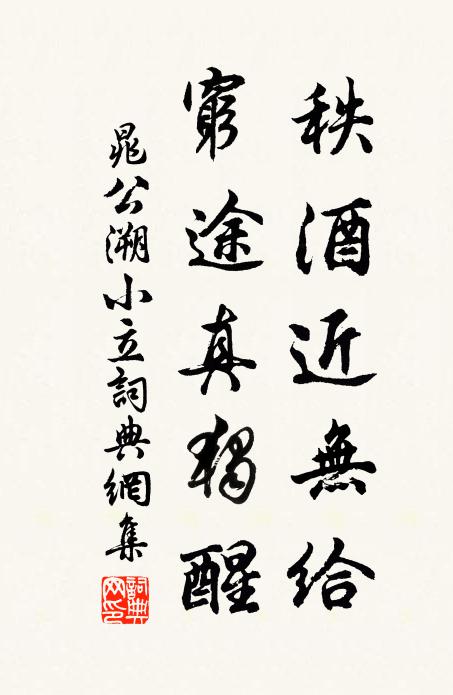 秩酒近無給
窮途真獨醒
晁公溯小立詞典網集
詞典网印